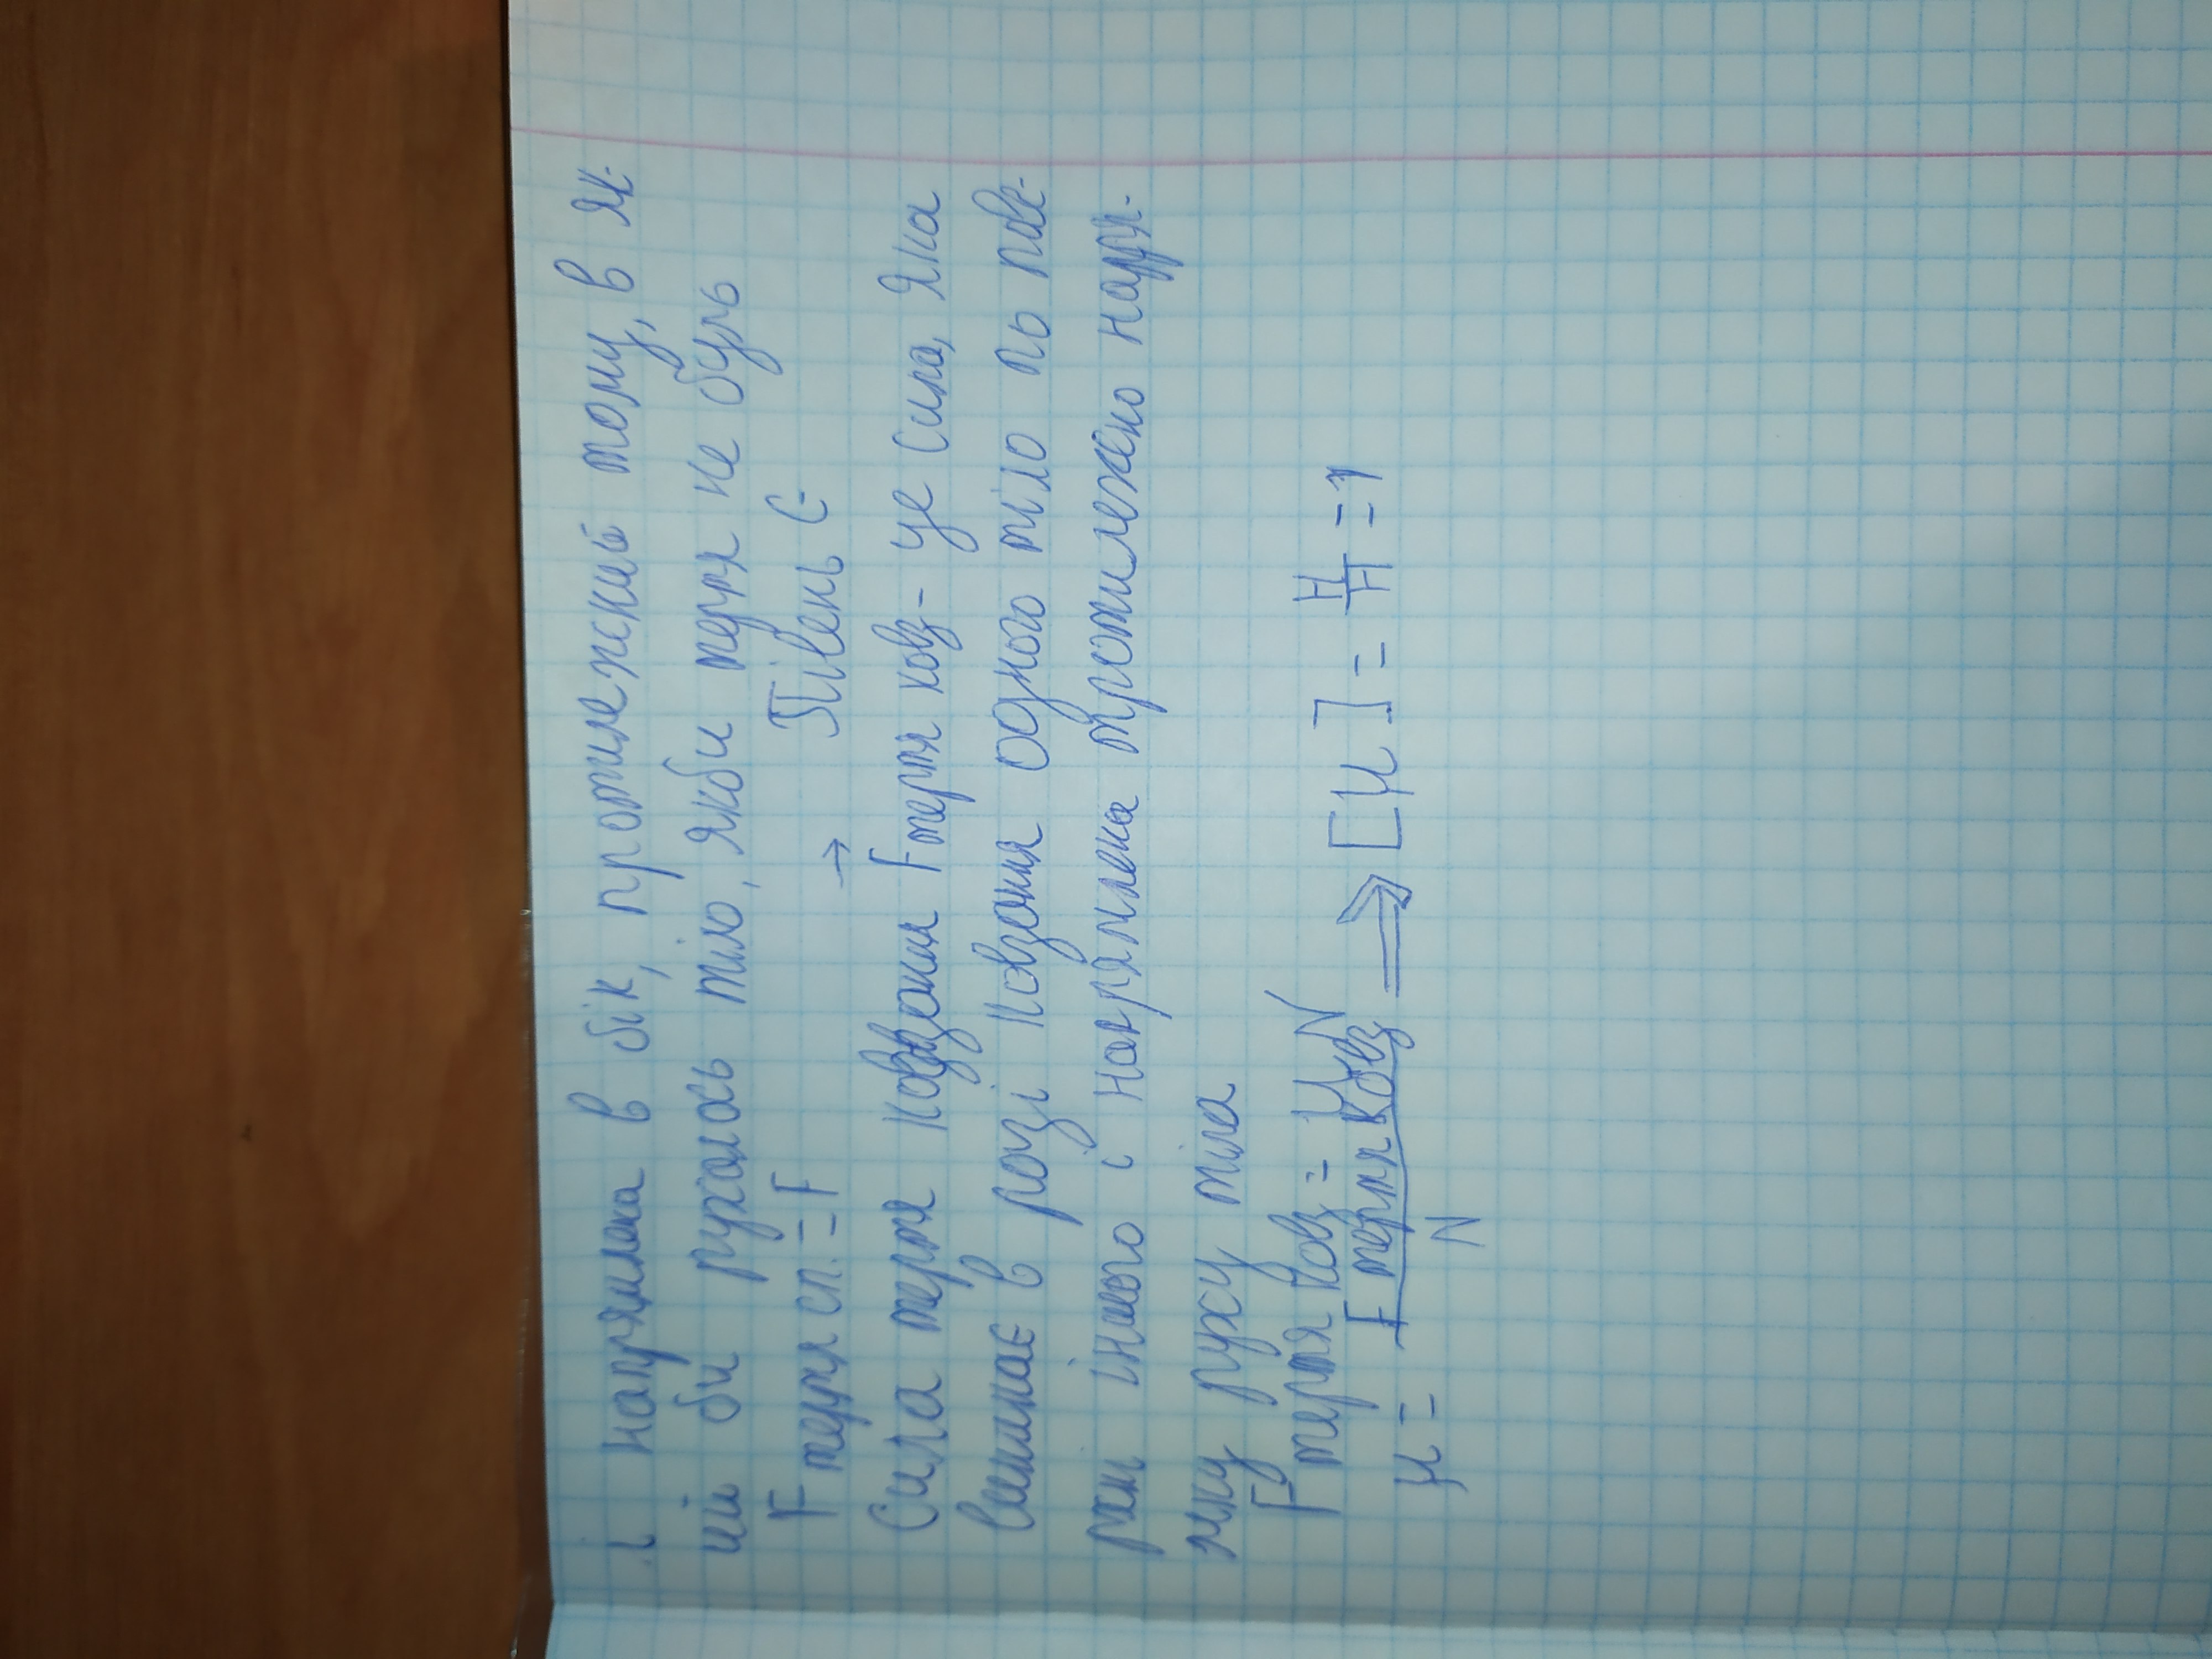 і напрямлена в бік, протилежний тому, в як-
ий би рухалось тіло, якби тертя не було
F тертя сп. = F Півень С-
→
Сила тертя ковзання Fтертя ковз - це сила, яка
виникає в разі ковзання одного тіло по пове-
рхні іншого і напрямлена протилежно напря-
мку руху тіла
F тертя ковз = μN
μ = F тертя ковз / N ⟹ [μ] = Н/Н = 1